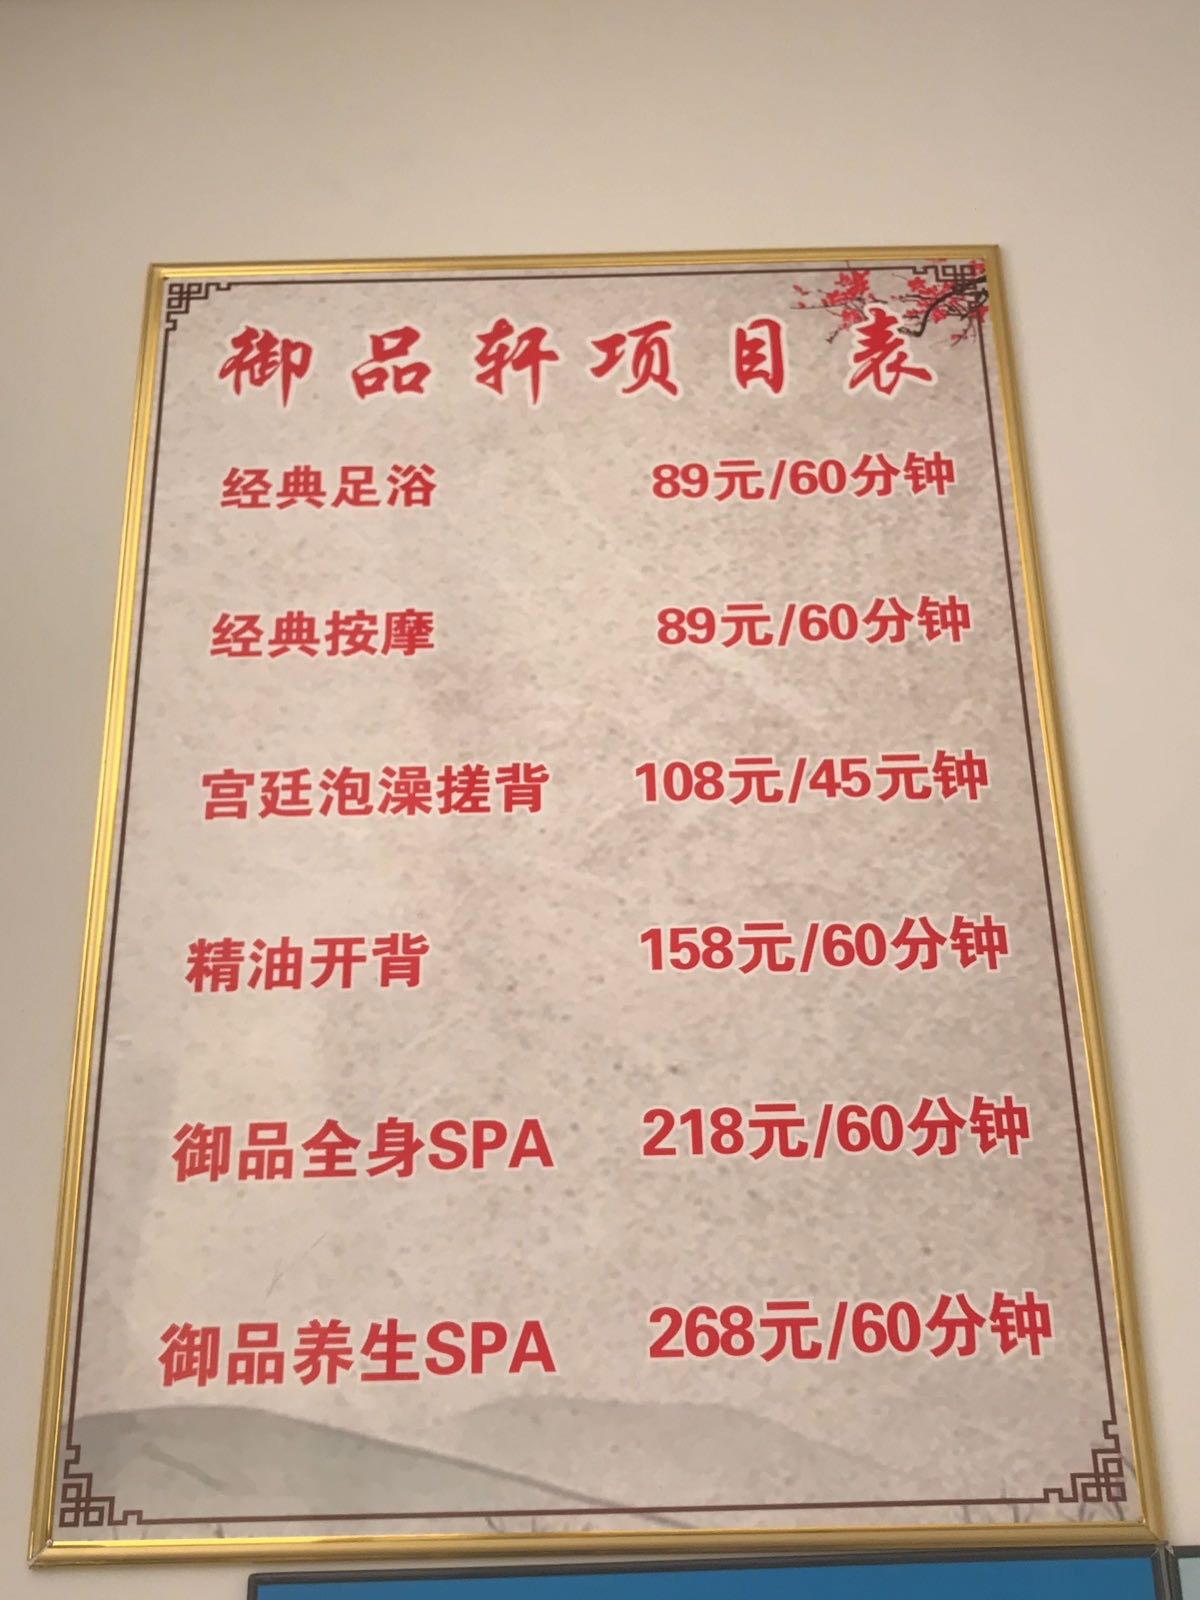 御品轩项目表
经典足浴 89元/60分钟
经典按摩 89元/60分钟
宫廷泡澡搓背 108元/45元钟
精油开背 158元/60分钟
御品全身SPA 218元/60分钟
御品养生SPA 268元/60分钟